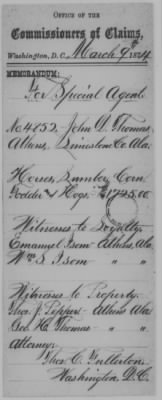 OFFICE OF THE
Commissioners of Claims,
Washington, D.C. March 9th 1874
MEMORANDUM:
For Special Agent
No 4852. John D. Thomas
Athens, Limestone Co Ala.
Horses, Lumber, Corn
Fodder & Hogs $1725.00
Witnesses to Loyalty:
Emanuel Isom Athens, Ala
Wm S Isom "
Witnesses to Property:
J. Athens Ala
Geo. H. Thomas " "
Attorney:
C. Fullerton
Washington D.C.